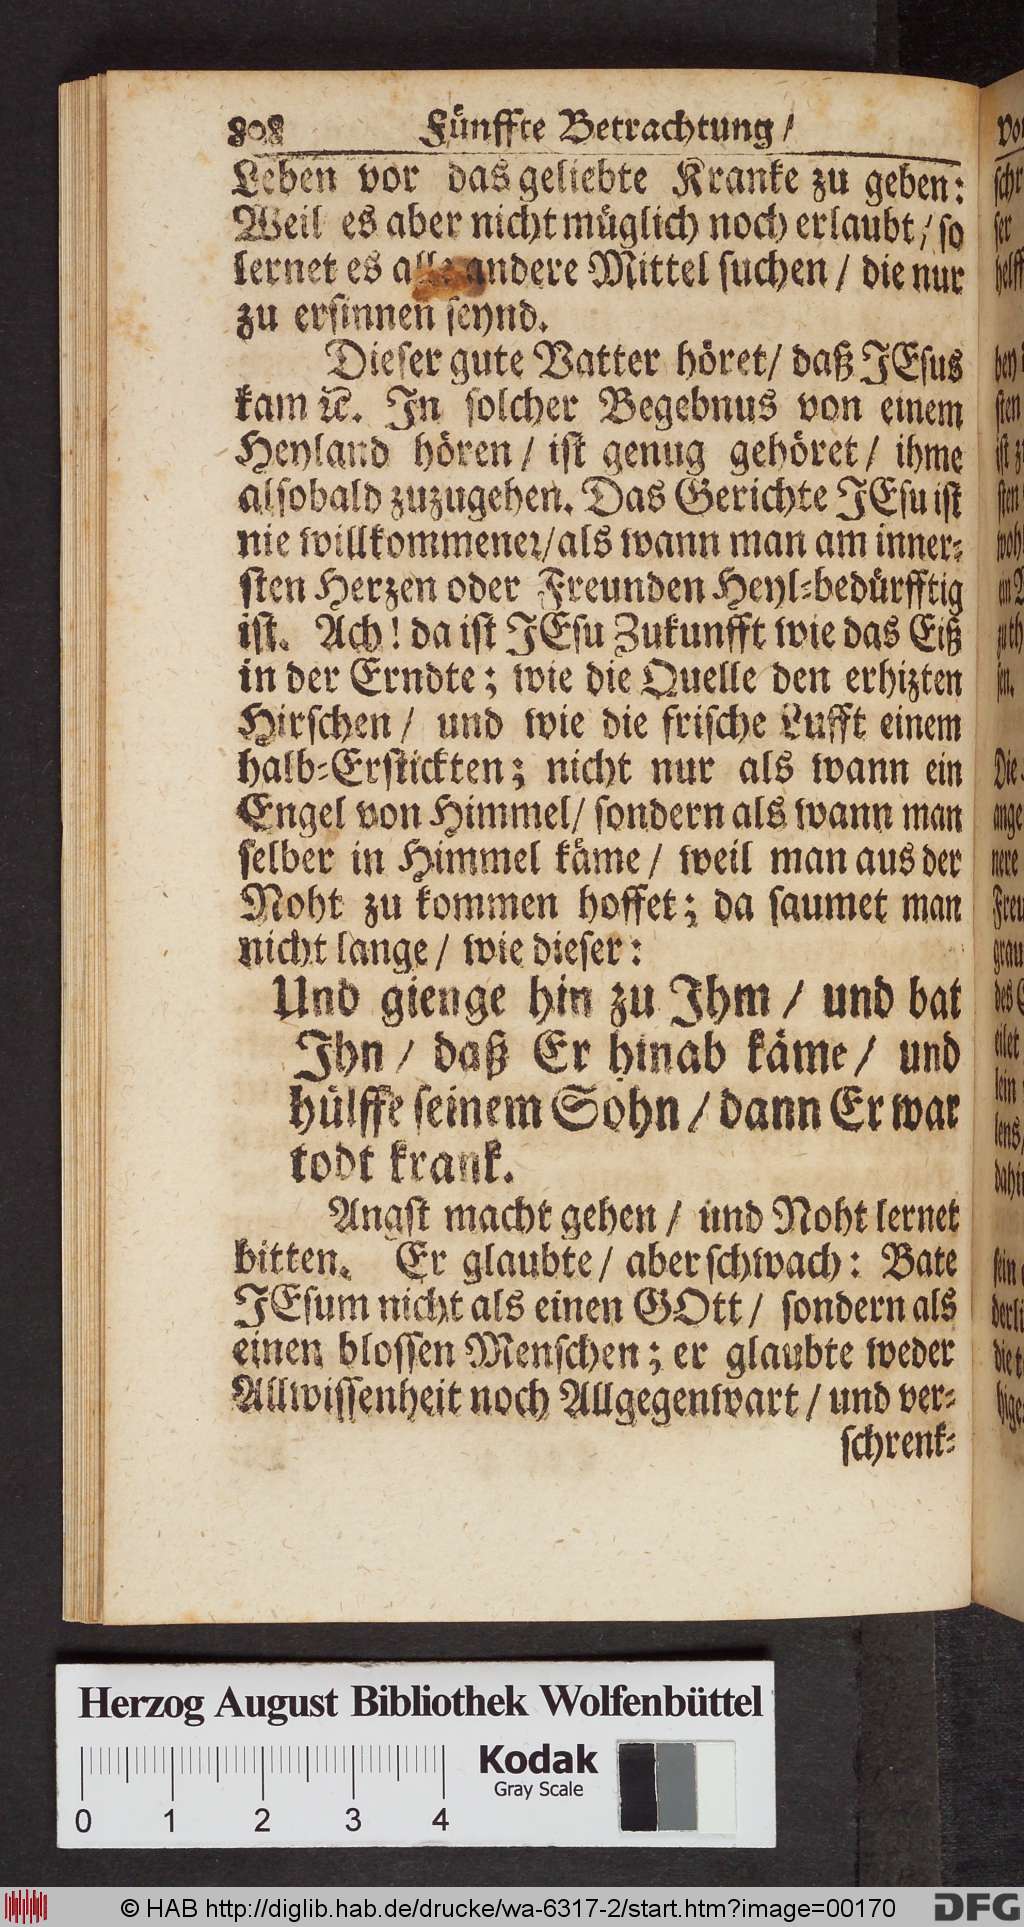 808 Fünffte Betrachtung /
Leben vor das geliebte Kranke zu geben:
Weil es aber nicht müglich noch erlaubt / so
lernet es alle andere Mittel suchen / die nur
zu ersinnen seynd.
Dieser gute Vatter höret / daß JEsus
kam ꝛc. In solcher Begebnus von einem
Heyland hören / ist genug gehöret / ihme
alsobald zuzugehen. Das Gerichte JEsu ist
nie willkommener / als wann man am inner-
sten Herzen oder Freunden Heyl-bedürfftig
ist. Ach! da ist JEsu Zukunfft wie das Eiß
in der Erndte; wie die Quelle den erhizten
Hirschen / und wie die frische Lufft einem
halb-Erstickten; nicht nur als wann ein
Engel von Himmel / sondern als wann man
selber in Himmel käme / weil man aus der
Noht zu kommen hoffet; da saumet man
nicht lange / wie dieser:
Und gienge hin zu Ihm / und bat
Ihn / daß Er hinab käme / und
hülffe seinem Sohn / dann Er war
todt krank.
Angst macht gehen / und Noht lernet
bitten. Er glaubte / aber schwach: Bate
JEsum nicht als einen GOtt / sondern als
einen blossen Menschen; er glaubte weder
Allwissenheit noch Allgegenwart / und ver-
schrenk-
Herzog August Bibliothek Wolfenbüttel
Kodak
Gray Scale
0 1 2 3 4
© HAB http://diglib.hab.de/drucke/wa-6317-2/start.htm?image=00170
DFG